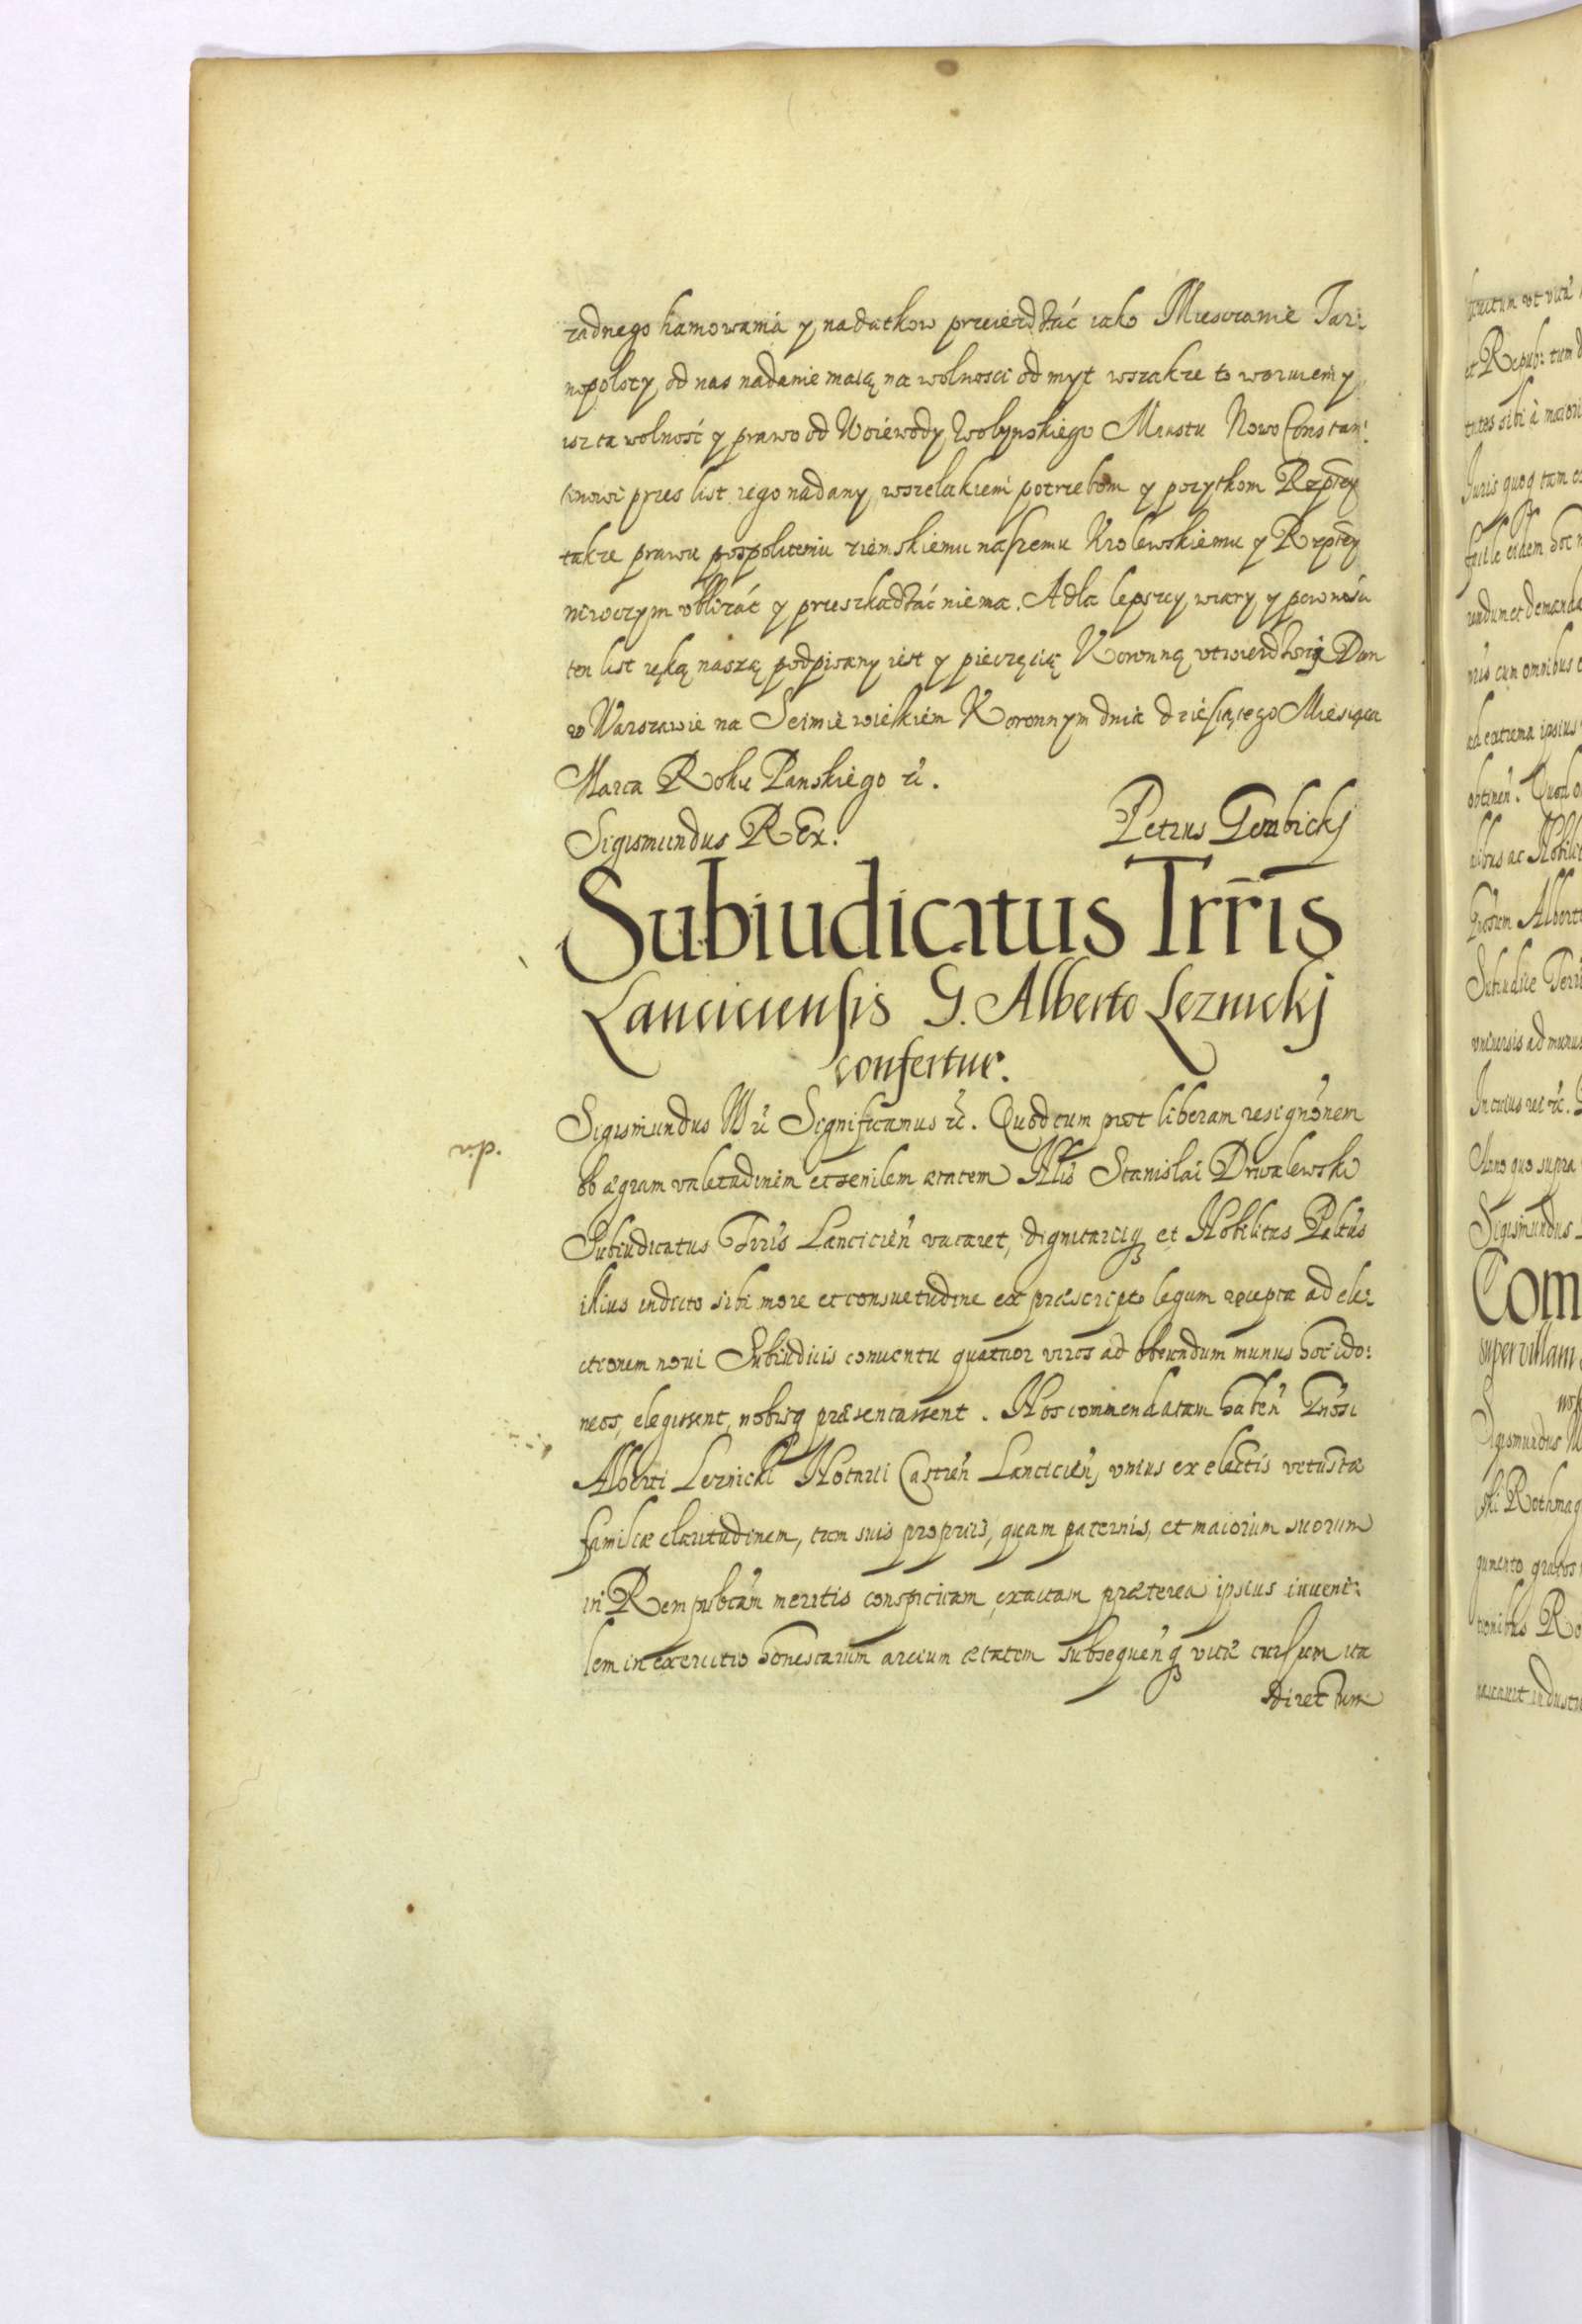 zadnego hamowania y nadatkow przeiezdzać iako Miesczanie Tar:
nopolscy od nas nadanie maią na wolnosci od myt wszakze to waruiemy
isz ta wolność y prawo od Woiewody Wolynskiego Miastu Nowo Constan:
tinowi przes list iego nadany, wszelakiem potrzebom y pozytkom Rzptey
takze prawu pospolitemu ziemskiemu naszemu Krolewskiemu y Rzptey
niwczym vbliżać y przeszkadzać niema. A dla lepszey wiary y pewnosci
ten list ręką naszą podpisany iest y pieczęcią Koronną vtwierdzony Dan
w Warszawie na Seimie wielkiem Koronnym dnia dziesiątego Miesiąca
Marca Roku Panskiego etc.
Sigismundus REx. Petrus Gembickj
Subiudicatus Trris
Lanciciensis G. Alberto Leznickj
confertur.
Sigismundus III etc Significamus etc. Quod cum post liberam resignonem
v.p.
ob ægram valetudinem et senilem ætatem Nlis Stanislai Drwalewski
Subiudicatus Trris Lancicien vacaret, dignitariiq et Nobilitas Paltus
illius indicto sibi more et consuetudine ex præscripto legum recepta ad ele:
ctionem noui Subiudicis conuentu quatuor viros ad obeundum munus hoc ido:
neos, elegissent, nobisq præsentassent. Nos commendatam haben Gnosi
Alberti Leznicki Notarii Castren Lancicien, vnius ex electis vetustæ
familiæ claritudinem, tum suis propriis, quam paternis, et maiorum suorum
in Rempublcam meritis conspicuam, exactam præterea ipsius iuueni:
lem in exercitio honestarum artium ætatem subsequenq vitæ cursum ita
directum